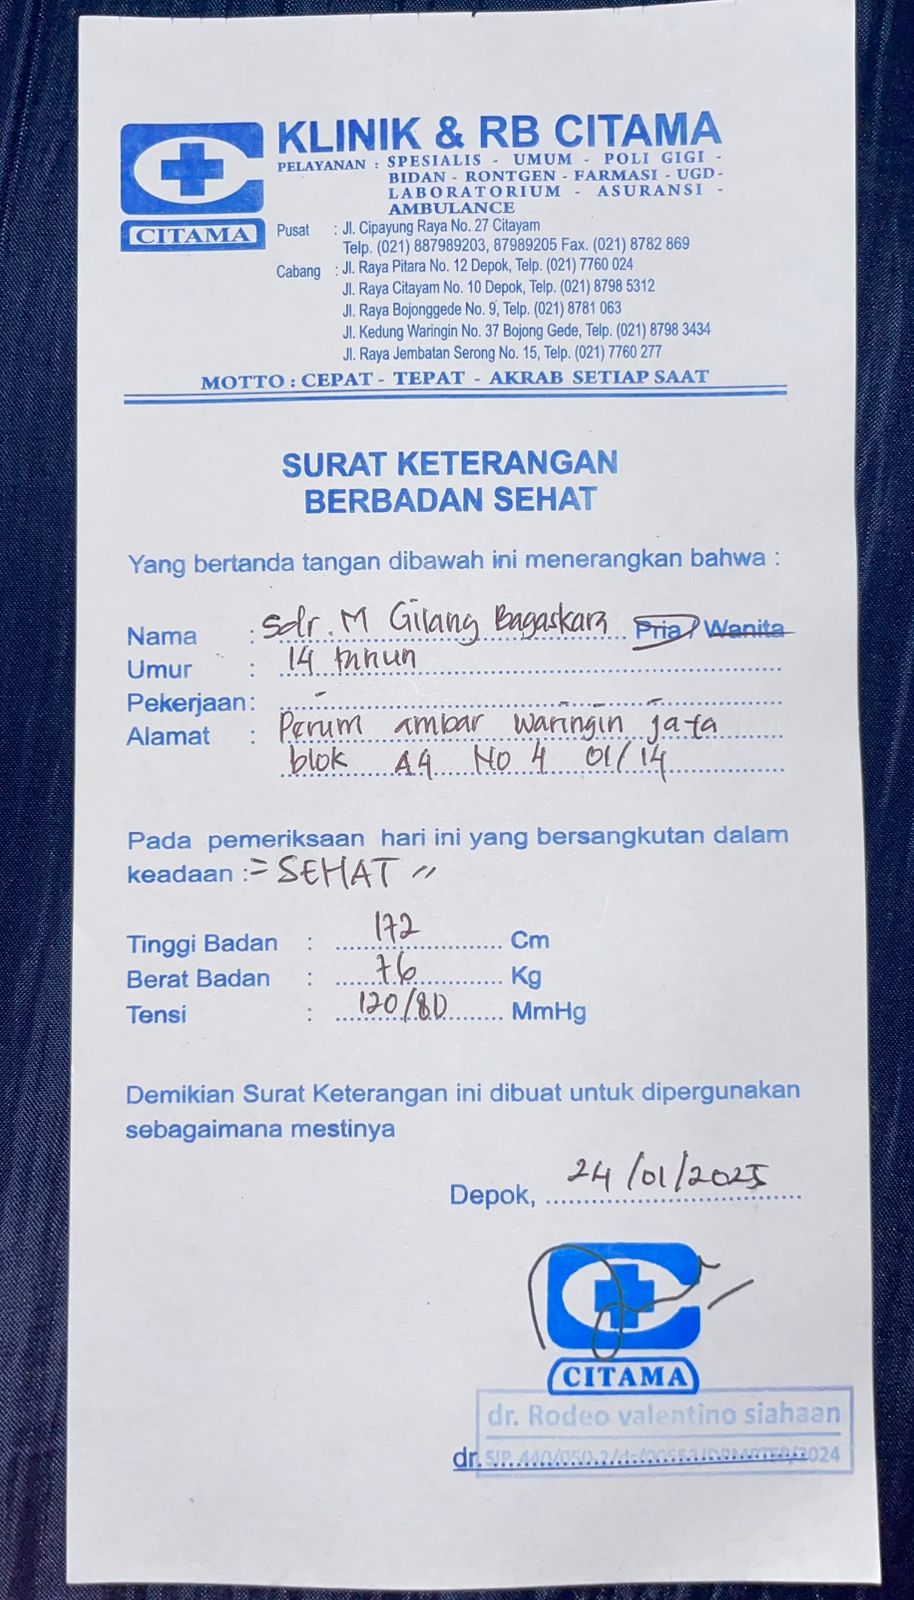 KLINIK & RB CITAMA
PELAYANAN : SPESIALIS - UMUM - POLI GIGI -
BIDAN - RONTGEN - FARMASI - UGD-
LABORATORIUM - ASURANSI -
AMBULANCE
CITAMA
Pusat : Jl. Cipayung Raya No. 27 Citayam
Telp. (021) 887989203, 87989205 Fax. (021) 8782 869
Cabang : Jl. Raya Pitara No. 12 Depok, Telp. (021) 7760 024
Jl. Raya Citayam No. 10 Depok, Telp. (021) 8798 5312
Jl. Raya Bojonggede No. 9, Telp. (021) 8781 063
Jl. Kedung Waringin No. 37 Bojong Gede, Telp. (021) 8798 3434
Jl. Raya Jembatan Serong No. 15, Telp. (021) 7760 277
MOTTO : CEPAT - TEPAT - AKRAB SETIAP SAAT
SURAT KETERANGAN
BERBADAN SEHAT
Yang bertanda tangan dibawah ini menerangkan bahwa :
Nama : Sdr. M Gilang Bagaskara Pria / Wanita
Umur : 14 tahun
Pekerjaan : -
Alamat : Perum ambar waringin jaya
blok A4 No 4 01/14
Pada pemeriksaan hari ini yang bersangkutan dalam
keadaan := SEHAT "
Tinggi Badan : 172 Cm
Berat Badan : 76 Kg
Tensi : 120/80 MmHg
Demikian Surat Keterangan ini dibuat untuk dipergunakan
sebagaimana mestinya
Depok, 24/01/2025
CITAMA
dr. Rodeo valentino siahaan
dr. SIP.